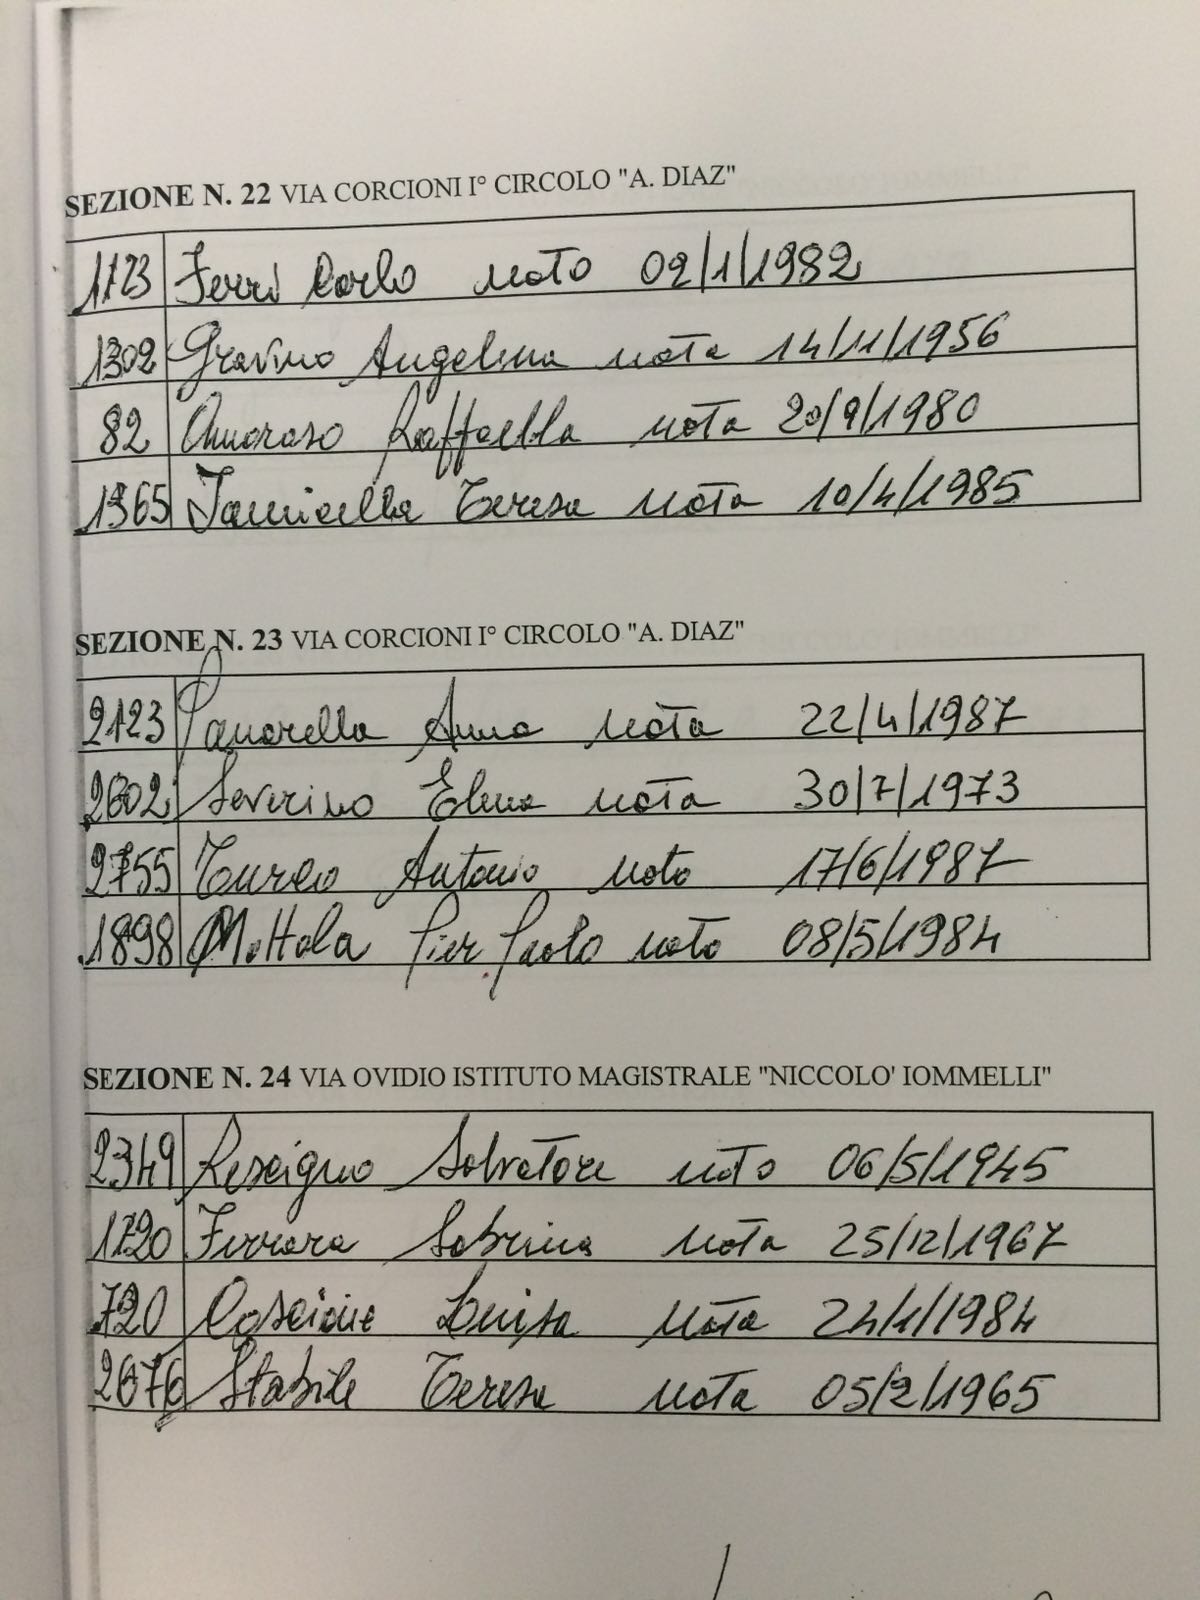 SEZIONE N. 22 VIA CORCIONI I° CIRCOLO "A. DIAZ"
1123 Ferri Carlo nato 02/1/1982
1302 Gravino Angelina nata 14/11/1956
82 Amoroso Raffaella nata 20/9/1980
1365 Iannicella Teresa nata 10/4/1985
SEZIONE N. 23 VIA CORCIONI I° CIRCOLO "A. DIAZ"
2123 Panarella Anna nata 22/4/1987
2602 Severino Elena nata 30/7/1973
2755 Turco Antonio nato 17/6/1987
1898 Mottola Pier Paolo nato 08/5/1984
SEZIONE N. 24 VIA OVIDIO ISTITUTO MAGISTRALE "NICCOLO' IOMMELLI"
2349 Rescigno Salvatore nato 06/5/1945
1220 Ferrara Sabrina nata 25/12/1967
720 Coscione Luisa nata 24/1/1984
2676 Stabile Teresa nata 05/2/1965